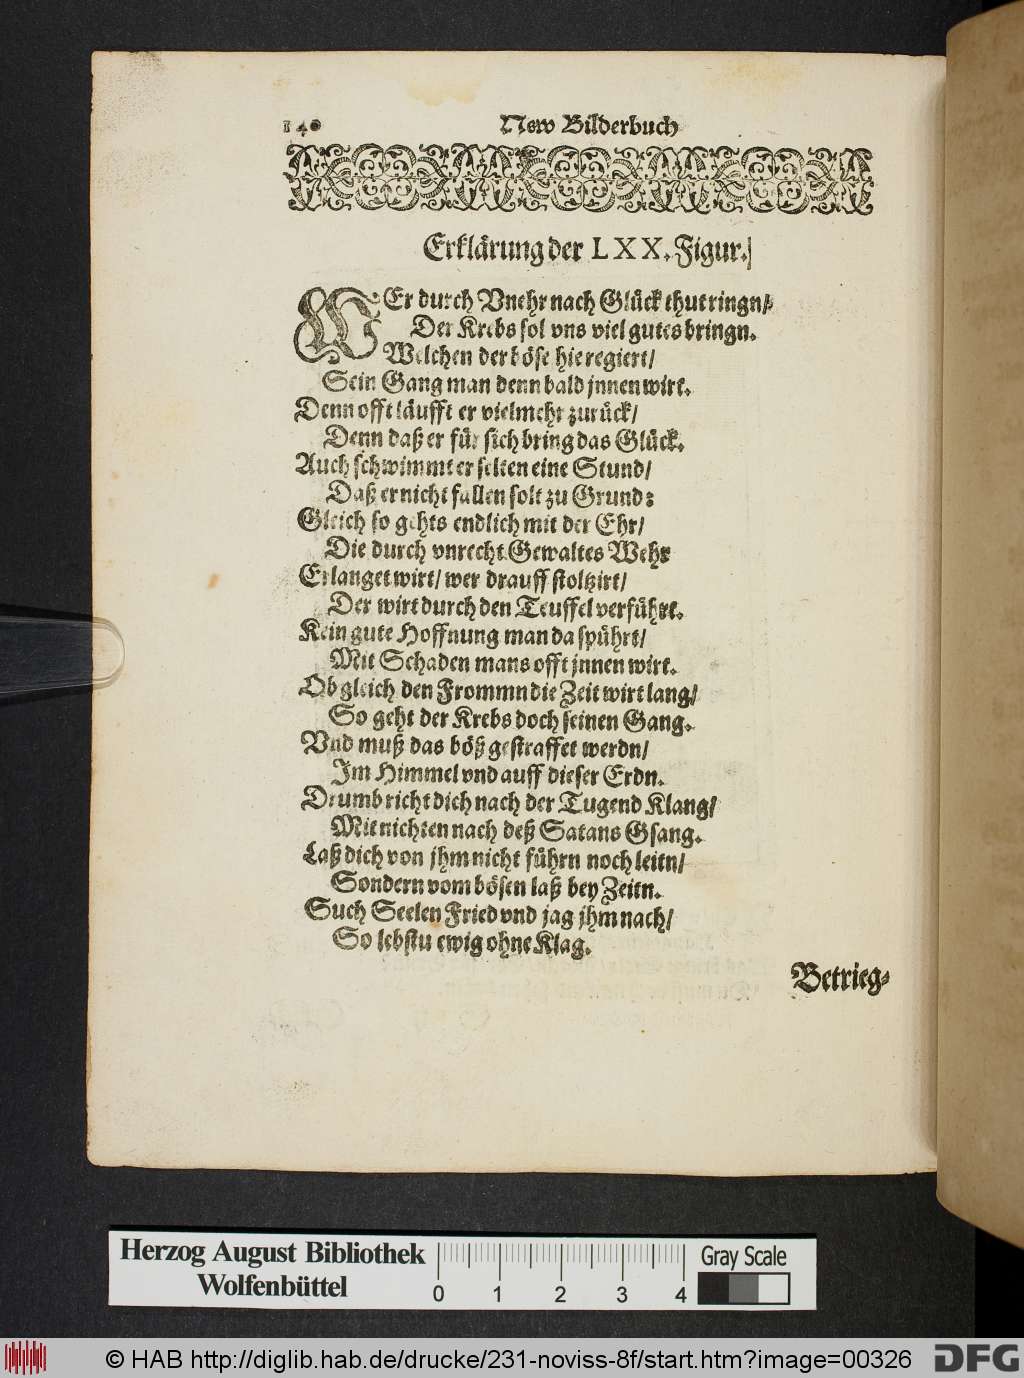 140 New Bilderbuch
Erklärung der LXX. Figur.
WEr durch Vnehr nach Glück thut ringn/
Der Krebs sol vns viel gutes bringn.
Welchen der böse hie regiert/
Sein Gang man denn bald jnnen wirt.
Denn offt läufft er vielmehr zurück/
Denn daß er für sich bring das Glück.
Auch schwimmt er selten eine Stund/
Daß er nicht fallen solt zu Grund:
Gleich so gehts endlich mit der Ehr/
Die durch vnrecht Gewaltes Wehr
Erlanget wirt/ wer drauff stoltzirt/
Der wirt durch den Teuffel verführt.
Kein gute Hoffnung man da spührt/
Mit Schaden mans offt jnnen wirt.
Ob gleich den Frommn die Zeit wirt lang/
So geht der Krebs doch seinen Gang.
Vnd muß das böß gestraffet werdn/
Im Himmel vnd auff dieser Erdn.
Drumb richt dich nach der Tugend Klang/
Mit nichten nach deß Satans Gsang.
Laß dich von jhm nicht führn noch leitn/
Sondern vom bösen laß bey Zeitn.
Such Seelen Fried vnd jag jhm nach/
So lebstu ewig ohne Klag.
Betrieg-
Herzog August Bibliothek
Wolfenbüttel
0 1 2 3 4
Gray Scale
© HAB http://diglib.hab.de/drucke/231-noviss-8f/start.htm?image=00326
DFG